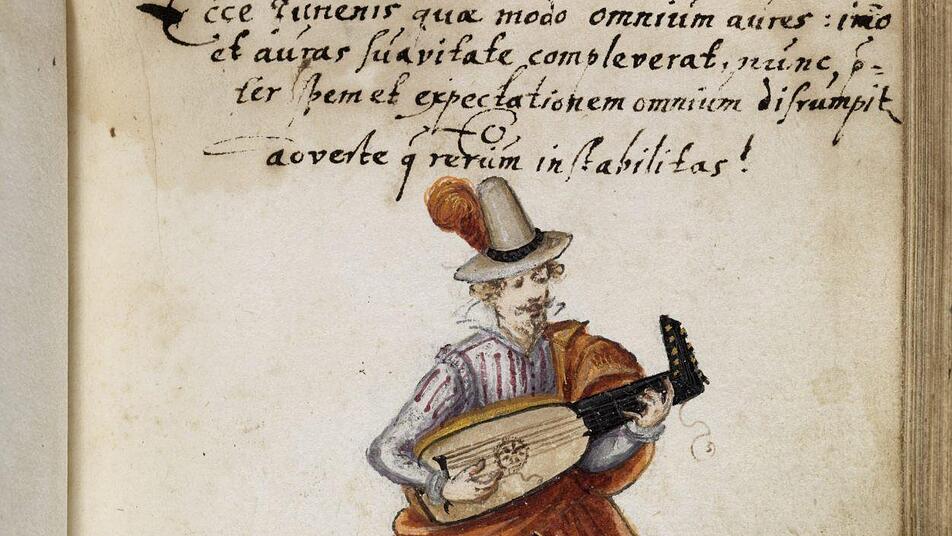 Ecce Iuuenis quæ modo omnium aures : imo
et auras suavitate compleverat, nunc, p̱-
ter spem et expectationem omnium disrumpit
adverte q̃ rerum instabilitas!